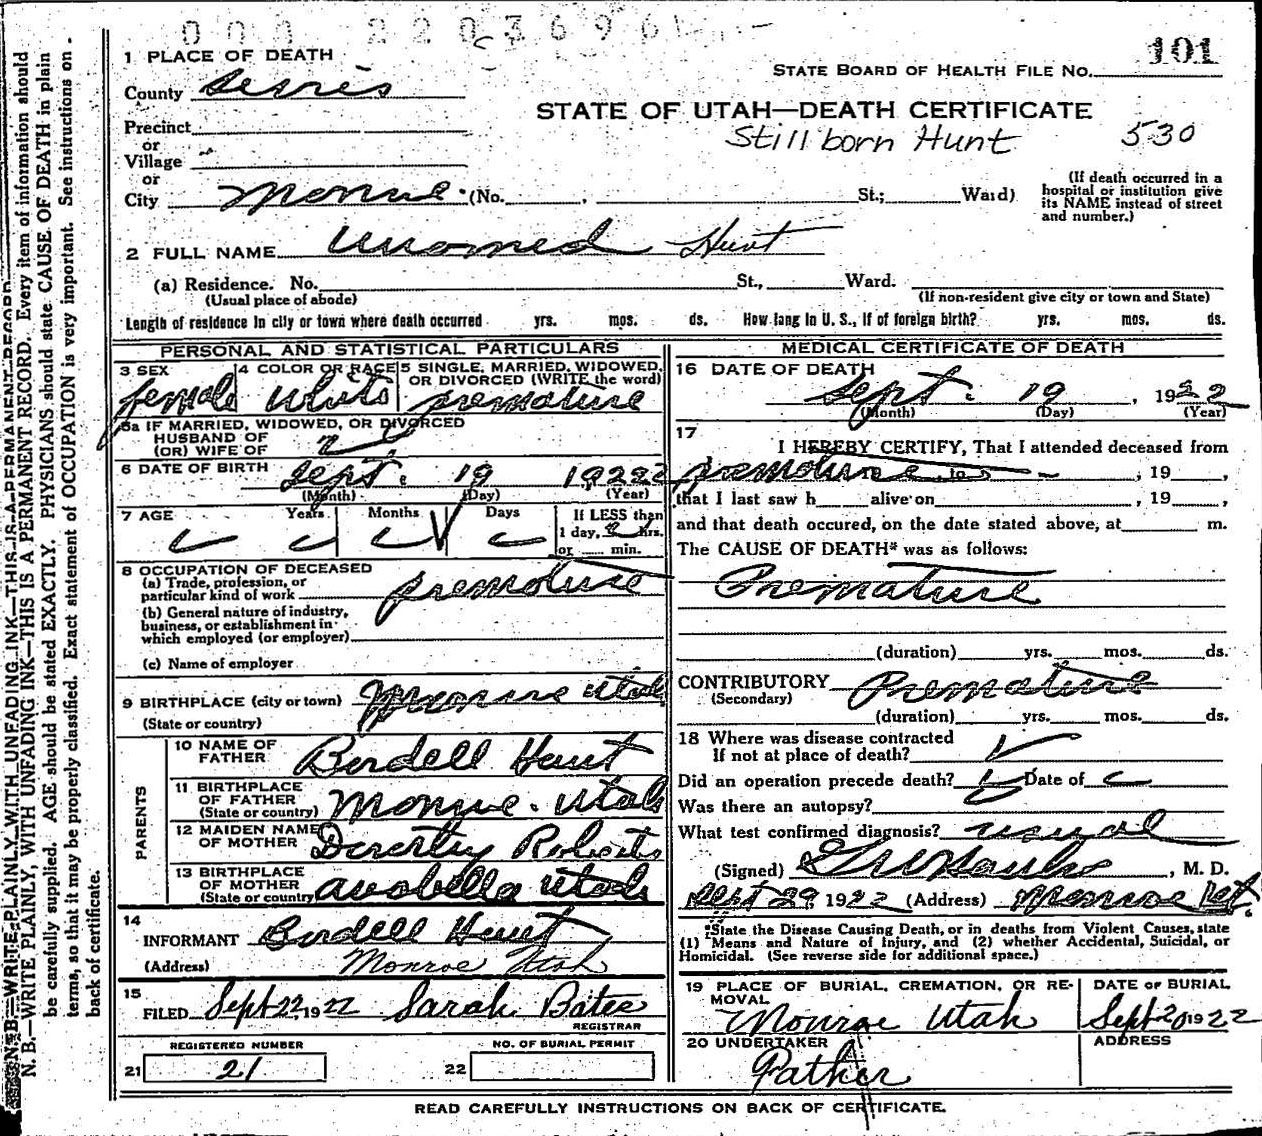 000 2203696
101
1 PLACE OF DEATH
STATE BOARD OF HEALTH FILE NO.
County
STATE OF UTAH—DEATH CERTIFICATE
Stillborn Hunt 530
Precinct
or
Village
or
City Monroe (No. , St.; Ward)
(If death occurred in a hospital or institution give its NAME instead of street and number.)
2 FULL NAME Unnamed Hunt
(a) Residence. No. St., Ward.
(Usual place of abode) (If non-resident give city or town and State)
Length of residence in city or town where death occurred yrs. mos. ds. How long in U. S., if of foreign birth? yrs. mos. ds.
PERSONAL AND STATISTICAL PARTICULARS
3 SEX female
4 COLOR OR RACE White
5 SINGLE, MARRIED, WIDOWED, OR DIVORCED (WRITE the word) premature
5a IF MARRIED, WIDOWED, OR DIVORCED
HUSBAND OF
(OR) WIFE OF
6 DATE OF BIRTH Sept. 19 1922
(Month) (Day) (Year)
7 AGE Years Months Days If LESS than
1 day, 2 hrs.
or min.
8 OCCUPATION OF DECEASED
(a) Trade, profession, or
particular kind of work premature
(b) General nature of industry,
business, or establishment in
which employed (or employer)
(c) Name of employer
9 BIRTHPLACE (city or town) Monroe Utah
(State or country)
PARENTS
10 NAME OF FATHER Birdell Hunt
11 BIRTHPLACE OF FATHER (State or country) Monroe. Utah
12 MAIDEN NAME OF MOTHER Roberts
13 BIRTHPLACE OF MOTHER (State or country) Utah
14
INFORMANT Birdell Hunt
(Address) Monroe Utah
15
FILED Sept 22, 1922 Sarah Bates
REGISTRAR
REGISTERED NUMBER NO. OF BURIAL PERMIT
21 21 22
MEDICAL CERTIFICATE OF DEATH
16 DATE OF DEATH
Sept. 19, 1922
(Month) (Day) (Year)
17
I HEREBY CERTIFY, That I attended deceased from
premature to , 19 ,
that I last saw h alive on , 19 ,
and that death occured, on the date stated above, at m.
The CAUSE OF DEATH* was as follows:
Premature
(duration) yrs. mos. ds.
CONTRIBUTORY Premature
(Secondary)
(duration) yrs. mos. ds.
18 Where was disease contracted
If not at place of death?
Did an operation precede death? Date of
Was there an autopsy?
What test confirmed diagnosis? usual
(Signed) , M. D.
Sept 29 1922 (Address) Monroe Ut.
*State the Disease Causing Death, or in deaths from Violent Causes, state
(1) Means and Nature of Injury, and (2) whether Accidental, Suicidal, or
Homicidal. (See reverse side for additional space.)
19 PLACE OF BURIAL, CREMATION, OR REMOVAL DATE OF BURIAL
Monroe Utah Sept 20 1922
20 UNDERTAKER ADDRESS
Father
READ CAREFULLY INSTRUCTIONS ON BACK OF CERTIFICATE.
N. B.—WRITE PLAINLY WITH UNFADING INK—THIS IS A PERMANENT RECORD.
N. B.—WRITE PLAINLY, WITH UNFADING INK—THIS IS A PERMANENT RECORD. Every item of information should
be carefully supplied. AGE should be stated EXACTLY. PHYSICIANS should state CAUSE OF DEATH in plain
terms, so that it may be properly classified. Exact statement of OCCUPATION is very important. See instructions on
back of certificate.